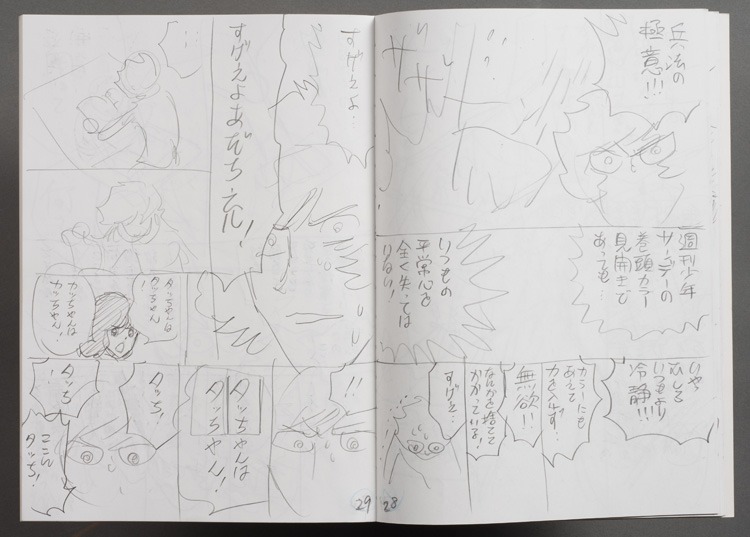 兵法の
極意!!!
ササッ
週刊少年
サンデーの
巻頭カラー
見開きで
あっても…
いつもの
平常心を
全く失っては
いない!
いや
むしろ
いつもより
冷静!!!
カラーにも
あえて
力を入れず…
無欲!!
なんかを捨てて
かかっている!
すげえ…
28
すげえよ…
すげえよあだち充!
…!
タッちゃんは
タッちゃん
!
カッちゃんは
カッちゃん!
!!
タッちゃんは
タッちゃん!
タッち!
タッち
!
ここに
タッち!
29